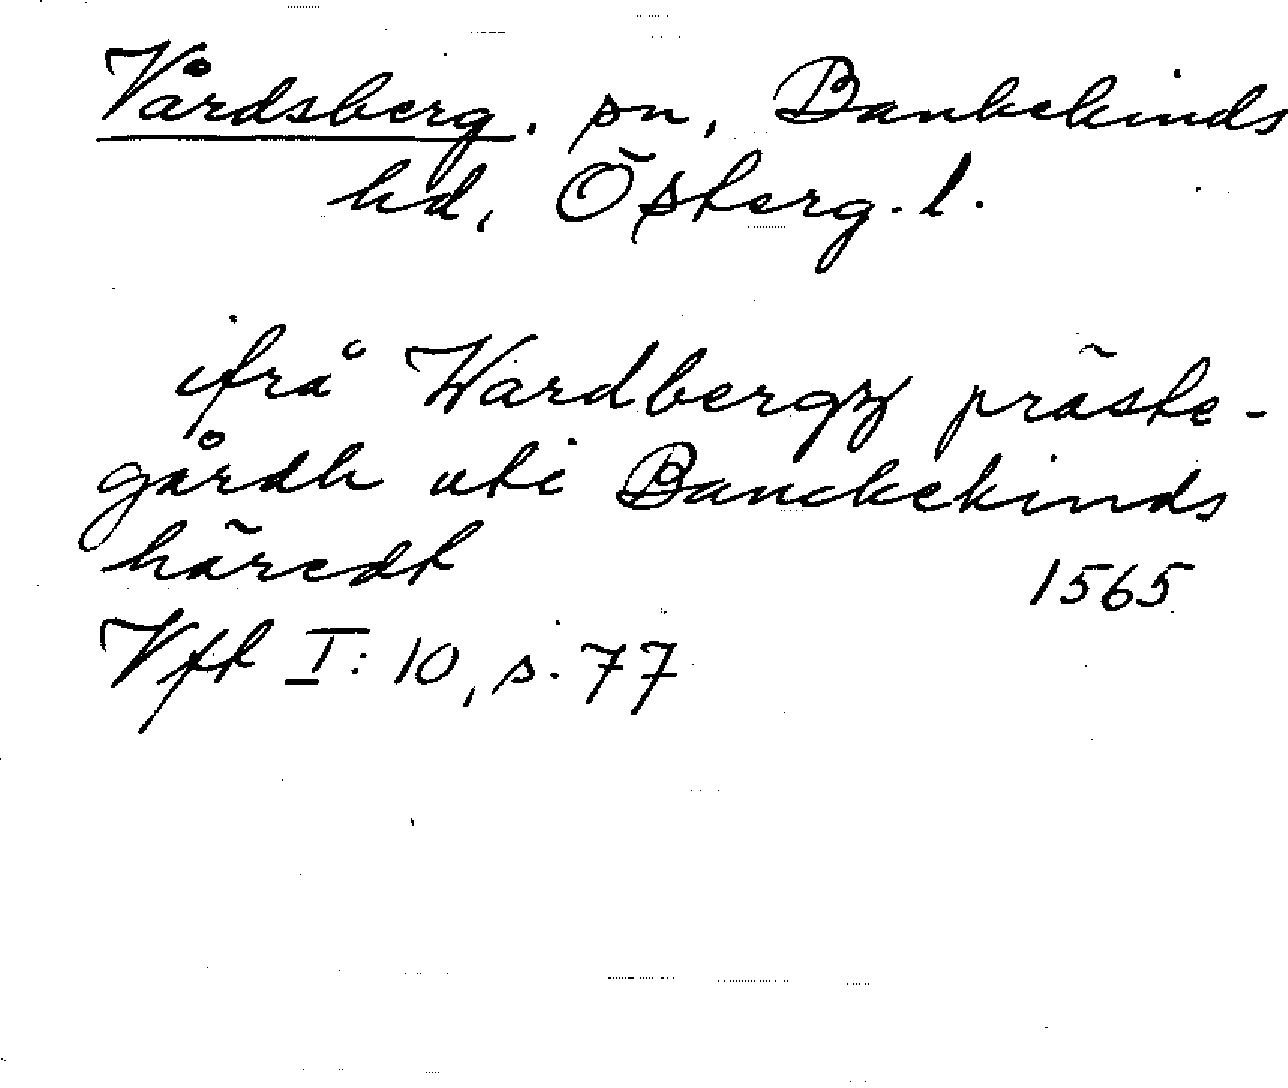 Vårdsberg. sn, Bankekinds
hd, Österg. l.
ifrå Wardbergz präste-
gårdh uti Banckekinds
häredt 1565
Vfk I: 10, s. 77